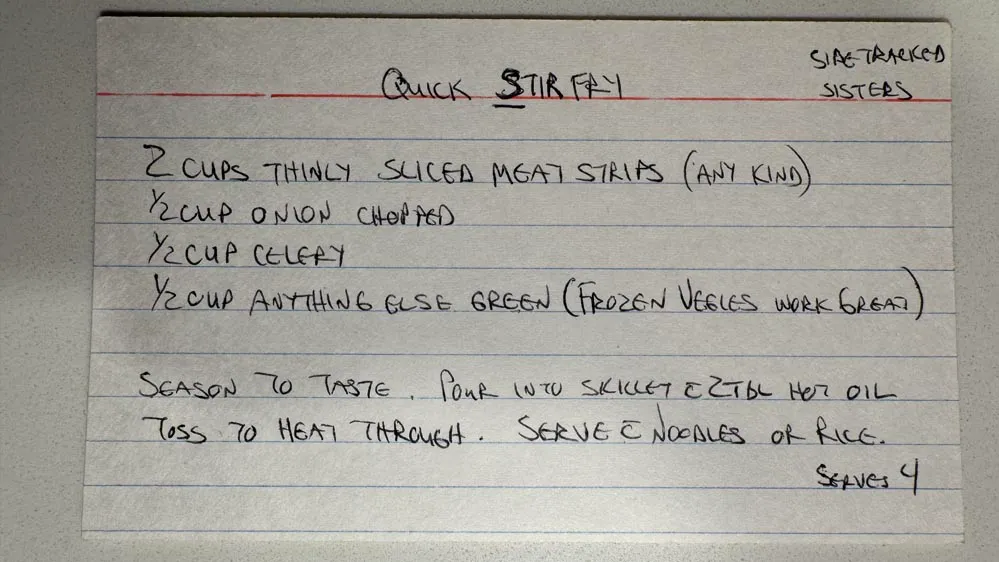 SIDETRACKED
SISTERS
QUICK STIR FRY
2 CUPS THINLY SLICED MEAT STRIPS (ANY KIND)
1/2 CUP ONION CHOPPED
1/2 CUP CELERY
1/2 CUP ANYTHING ELSE GREEN (FROZEN VEGLES WORK GREAT)
SEASON TO TASTE. POUR INTO SKILLET C̄ 2 TBL HOT OIL
TOSS TO HEAT THROUGH. SERVE C̄ NOODLES OR RICE.
SERVES 4